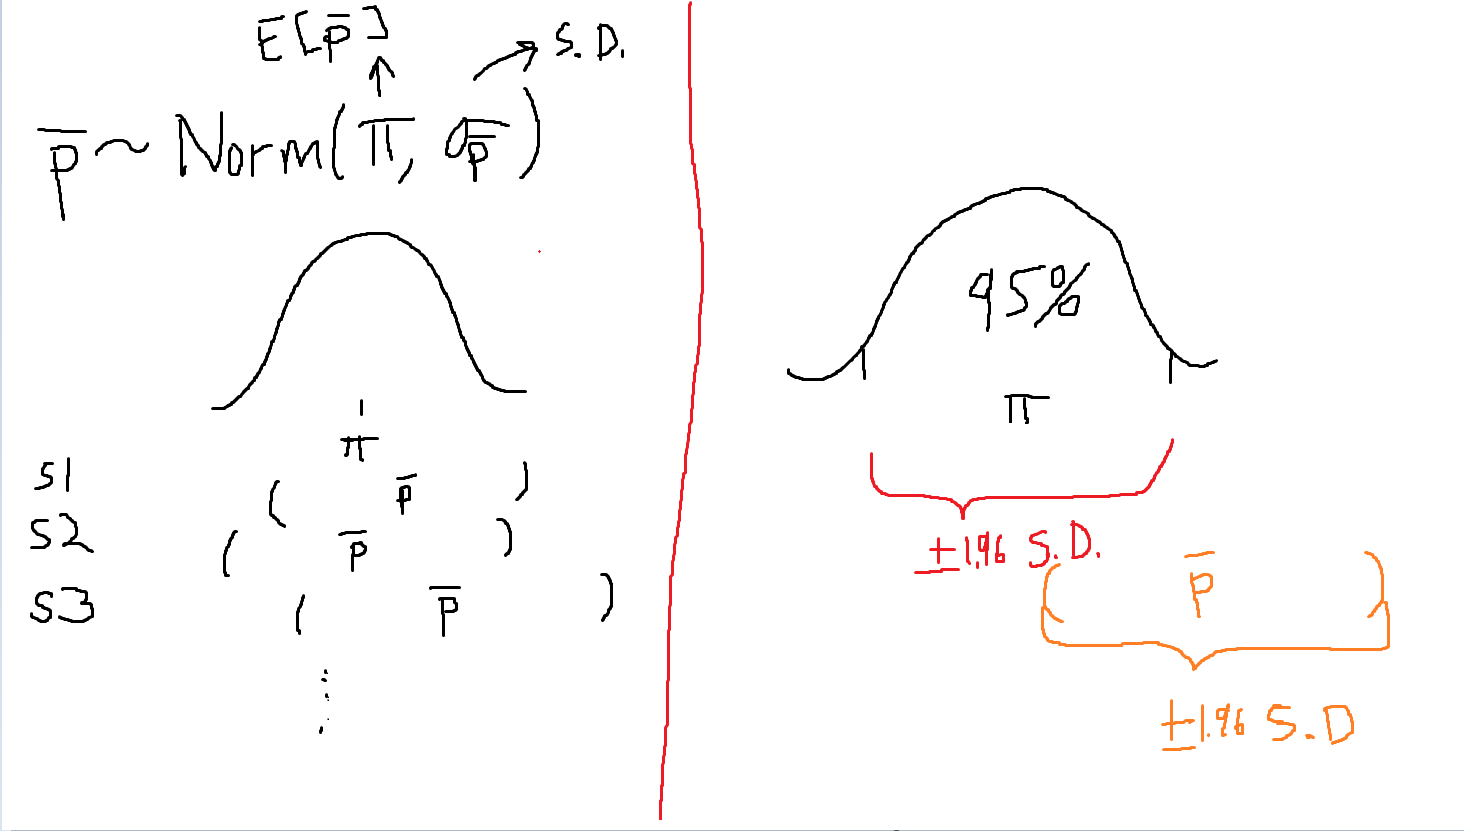 E[p̅]
S.D.
p̅ ~ Norm(π, σp̅)
π
S1 ( p̅ )
S2 ( p̅ )
S3 ( p̅ )
⋮
95%
π
±1.96 S.D.
( p̅ )
±1.96 S.D